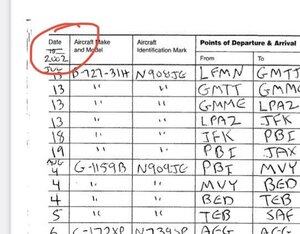 Date Aircraft Make and Model Aircraft Identification Mark Points of Departure & Arrival
19 2002 From To
JUL
13 B-727-31H N908JE LFMN GMTT
13 " " GMTT GMME
13 " " GMME LPAZ
13 " " LPAZ JFK
18 " " JFK PBI
19 " " PBI JAX
AUG
4 G-1159B N909JE PBI MVY
4 " " MVY BED
4 " " BED TEB
5 " " TEB SAF